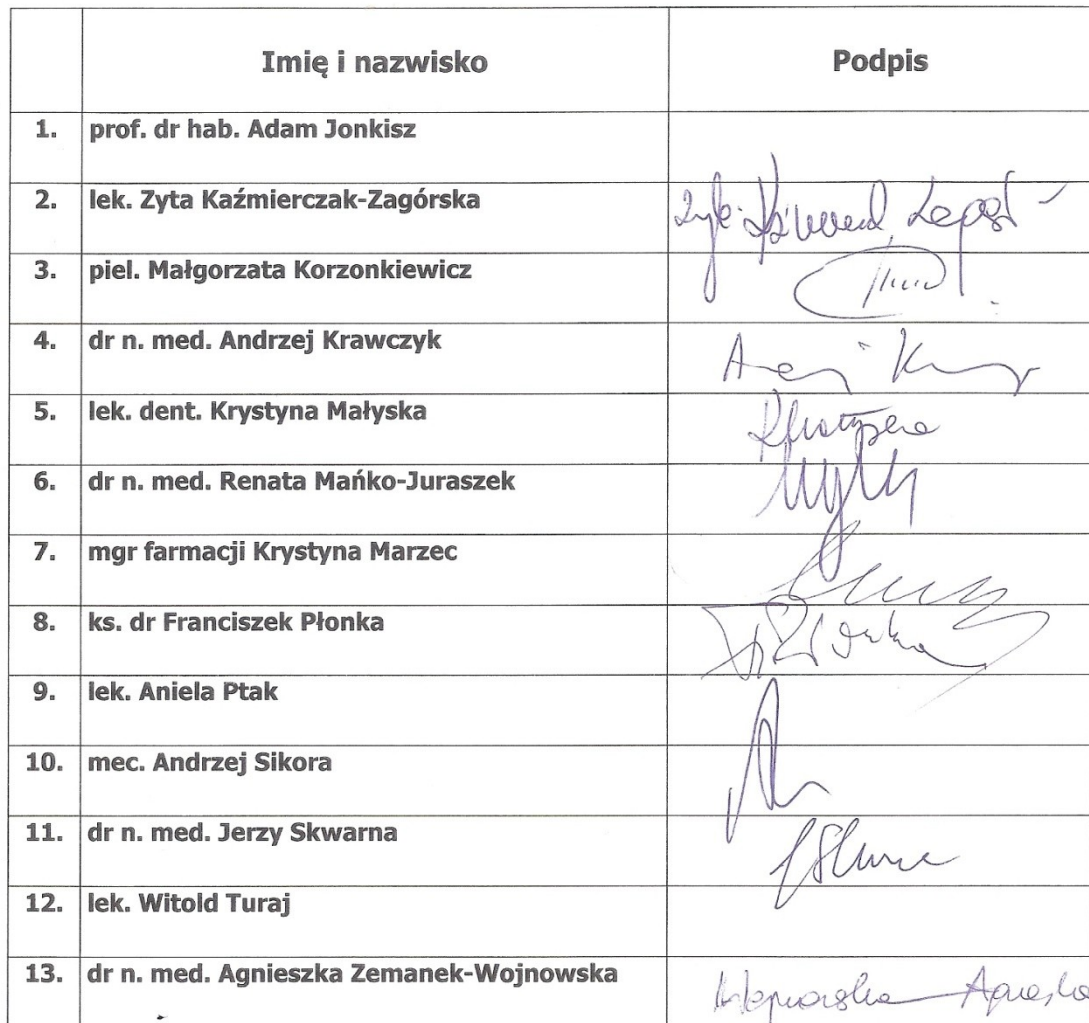 Imię i nazwisko Podpis
1. prof. dr hab. Adam Jonkisz
2. lek. Zyta Kaźmierczak-Zagórska
3. piel. Małgorzata Korzonkiewicz
4. dr n. med. Andrzej Krawczyk
5. lek. dent. Krystyna Małyska
6. dr n. med. Renata Mańko-Juraszek
7. mgr farmacji Krystyna Marzec
8. ks. dr Franciszek Płonka
9. lek. Aniela Ptak
10. mec. Andrzej Sikora
11. dr n. med. Jerzy Skwarna
12. lek. Witold Turaj
13. dr n. med. Agnieszka Zemanek-Wojnowska